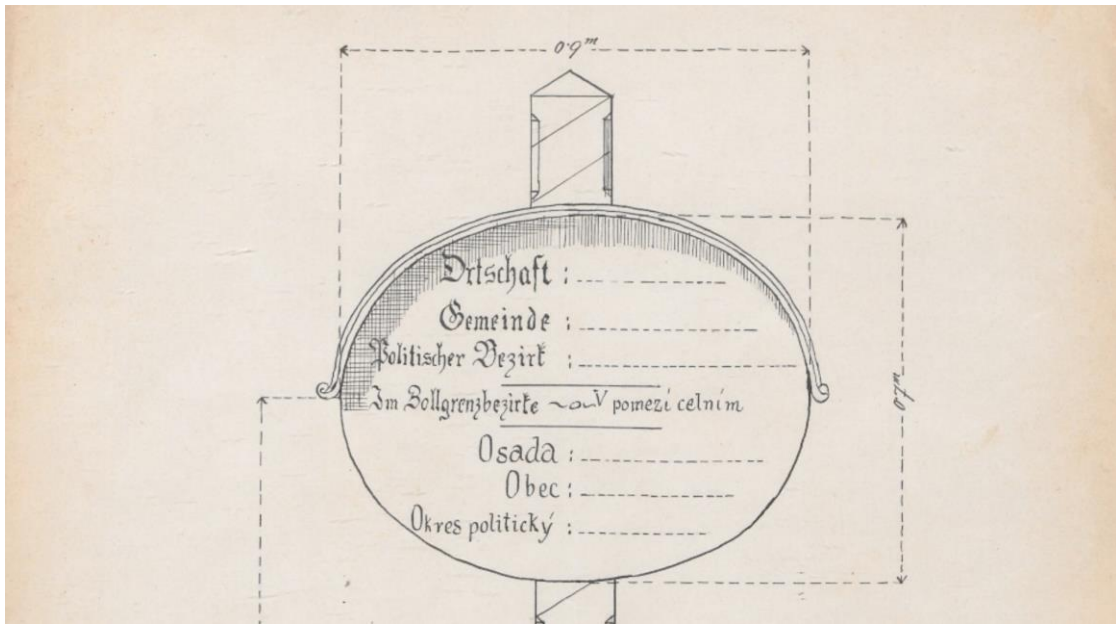 0·9 m
Ortschaft :
Gemeinde :
Politischer Bezirk :
Im Zollgrenzbezirke ~o~ V pomezí celním
0.7 m
Osada :
Obec :
Okres politický :